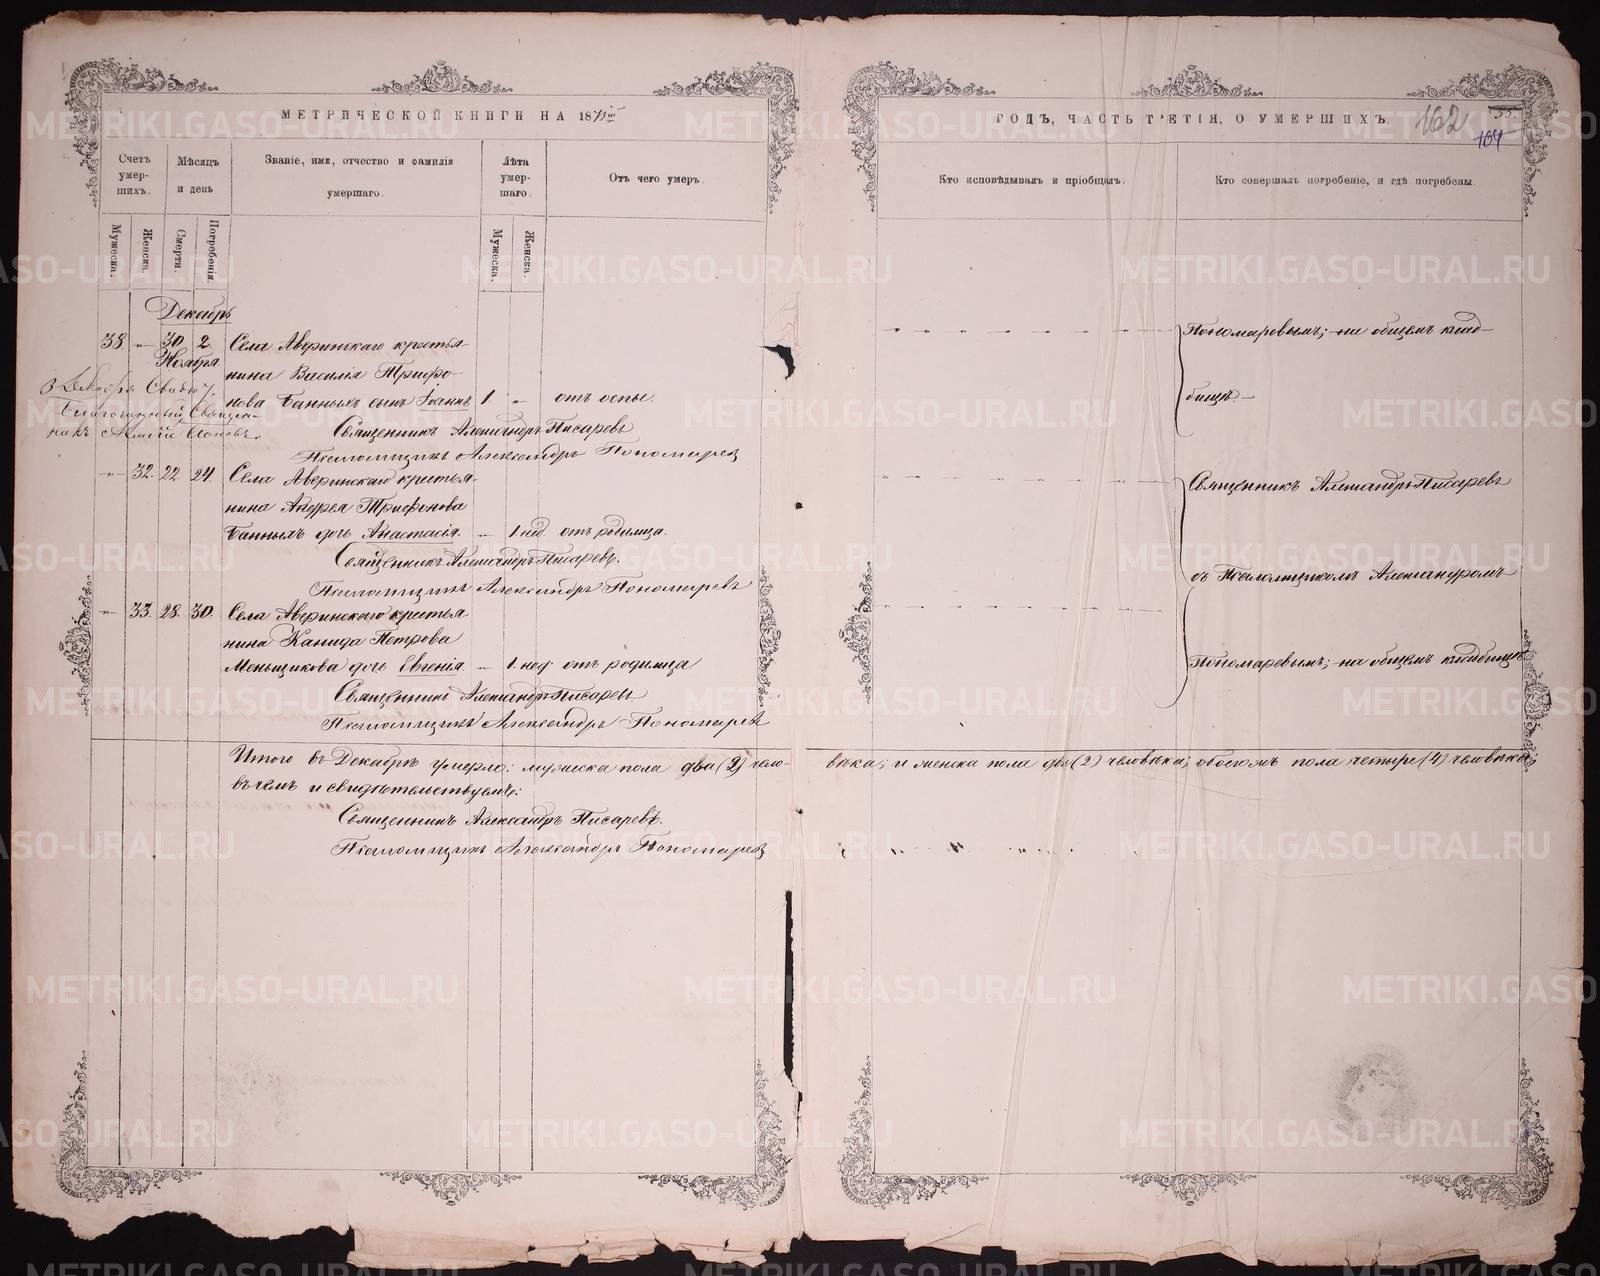 МЕТРИЧЕСКОЙ КНИГИ НА 187
ГОДЪ, ЧАСТЬ ТРЕТІЯ, О УМЕРШИХЪ.
162
104
Счетъ умер-шихъ.
Мѣсяцъ и день
Званіе, имя, отчество и фамилія умершаго.
Лѣта умер-шаго.
Отъ чего умеръ.
Кто исповѣдывалъ и пріобщалъ.
Кто совершалъ погребеніе, и гдѣ погребены.
Мужеска.
Женска.
Смерти.
Погребенія.
Мужеска.
Женска.
Декабрь
38 „ 30 2. Села Аверинскаго крестья-
Ноября
нина Василія Трифо-
нова Банныхъ сынъ Іоаннъ 1. „ отъ оспы.
Священникъ Александръ Писаревъ
Псаломщикъ Александръ Пономарев
Пономаревымъ; на общемъ клад-
бищѣ.
„ 32. 22. 24. Села Аверинскаго крестья-
нина Андрея Трифонова
Банныхъ дочь Анастасія. „ 1. нед. отъ родимца.
Священникъ Александръ Писаревъ.
Псаломщикъ Александръ Пономаревъ
Священникъ Александръ Писаревъ
съ Псаломщикомъ Александромъ
„ 33. 28. 30. Села Аверинскаго крестья
нина Петрова
Меньщикова дочь Евгенія „ 1. нед. отъ родимца
Священникъ Александръ Писаревъ
Псаломщикъ Александръ Пономарев
Пономаревымъ; на общемъ кладбищѣ
Итого въ Декабрѣ умерло: мужеска пола два (2) чело-
вѣка; и женска пола два (2) человѣка; обоего пола четыре (4) человѣка,
въ чемъ и свидѣтельствуемъ:
Священникъ Александръ Писаревъ.
Псаломщикъ Александръ Пономарев
METRIKI.GASO-URAL.RU